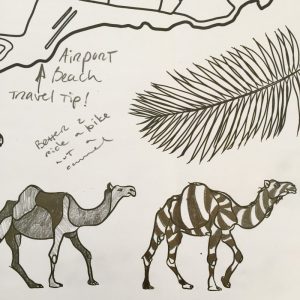 Airport
A Beach
Travel Tip!
Better 2
ride a bike
not a
camel